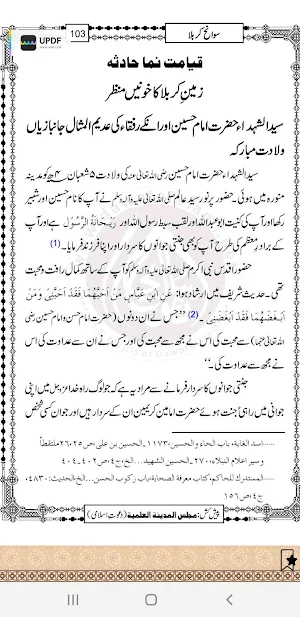 UPDF
WWW.UPDF.COM
103
سوانح کربلا
قیامت نما حادثہ
زمینِ کربلا کا خونیں منظر
سیدالشہداء حضرت امام حسین اور انکے رفقاء کی عدیم المثال جانبازیاں
ولادت مبارکہ
سیدالشہداء حضرت امام حسین رضی اللہ تعالیٰ عنہ کی ولادت ۵ شعبان ۴ھ کو مدینہ
منورہ میں ہوئی۔ حضور پرنور سید عالم صلی اللہ تعالیٰ علیہ وآلہٖ وسلم نے آپ کا نام حسین اور شبیر
رکھا اور آپ کی کنیت ابوعبداللہ اور لقب سبط رسول اللہ اور رَیْحَانَۃُ الرَّسُوْل ہے اور آپ
کے برادرِ معظم کی طرح آپ کو بھی جنتی جوانوں کا سردار اور اپنا فرزند فرمایا۔(1)
حضور اقدس نبی اکرم صلی اللہ تعالیٰ علیہ وآلہٖ وسلم کو آپ کے ساتھ کمال رافت و محبت
تھی۔ حدیث شریف میں ارشاد ہوا: عَنِ ابْنِ عَبَّاسٍ مَنْ اَحَبَّهُمَا فَقَدْ اَحَبَّنِیْ وَمَنْ
اَبْغَضَهُمَا فَقَدْ اَبْغَضَنِیْ۔(2) ”جس نے ان دونوں (حضرت امام حسن و امام حسین رضی
اللہ تعالیٰ عنہما) سے محبت کی اس نے مجھ سے محبت کی اور جس نے ان سے عداوت کی اس
نے مجھ سے عداوت کی۔“
جنتی جوانوں کا سردار فرمانے سے مراد یہ ہے کہ جو لوگ راہ خدا عزوجل میں اپنی
جوانی میں راہی جنت ہوئے حضرت امامین کریمین ان کے سردار ہیں اور جوان کسی شخص
......اسد الغابۃ، باب الحاء والحسین، ١١٧٣۔الحسین بن علی، ج٢، ص٢٥، ٢٦ ملتقطاً
وسیر اعلام النبلاء، ٢٧٠۔الحسین الشہید...الخ، ج٤، ص٤٠٢۔٤٠٤
......المستدرك للحاكم، كتاب معرفة الصحابة، باب ركوب الحسن...الخ، الحديث: ٤٨٣٠،
ج٤، ص١٥٦
پیش کش: مجلس المدینۃ العلمیۃ (دعوت اسلامی)